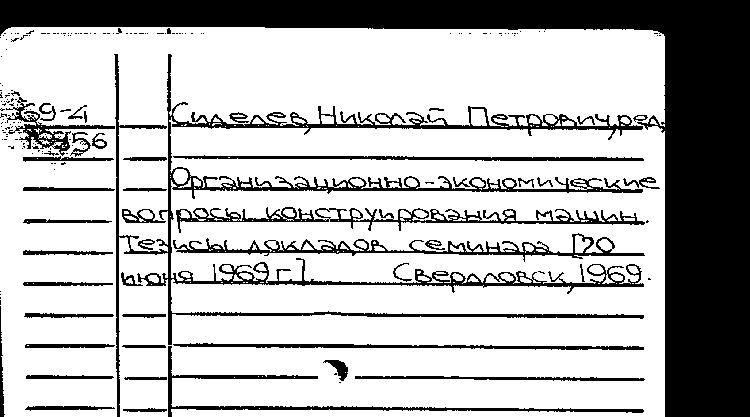 69-4 Сиделев, Николай Петрович, ред.
Организационно-экономические
вопросы конструирования машин.
Тезисы докладов семинара [20
июня 1969 г.]. Свердловск, 1969.